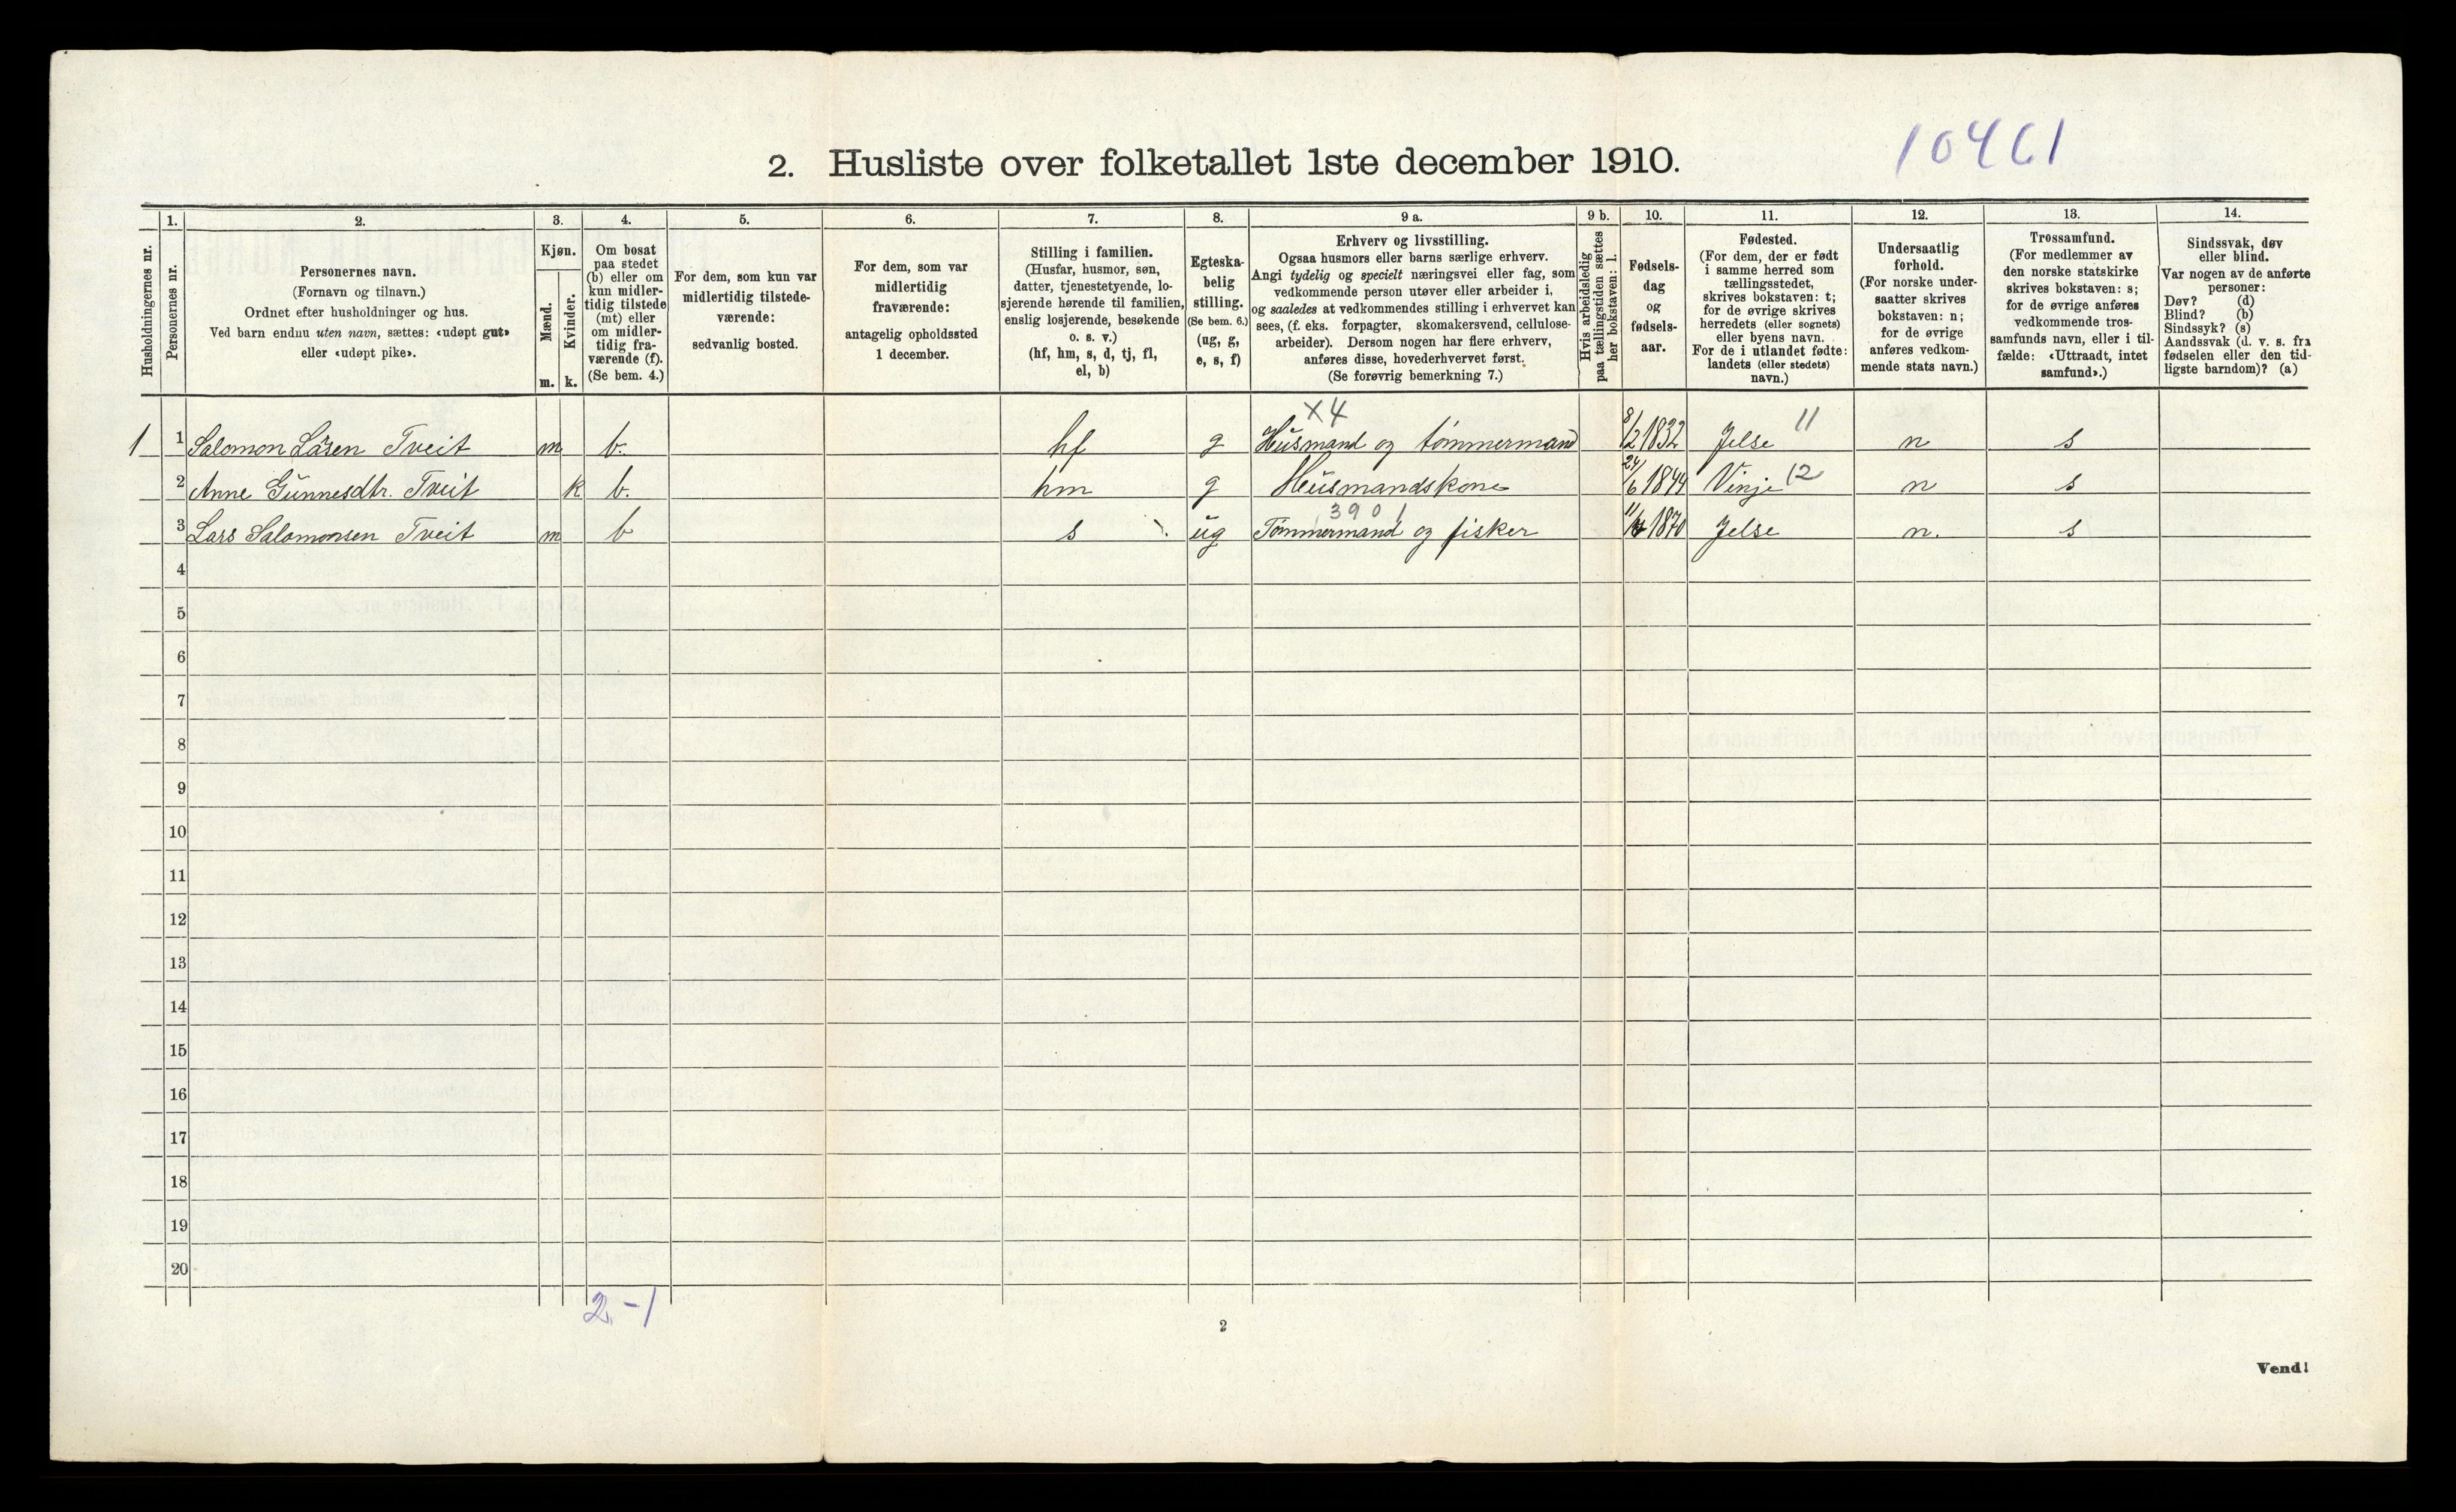 10461
2. Husliste over folketallet 1ste december 1910.
Husholdningernes nr.
1.
Personernes nr.
2.
Personernes navn.
(Fornavn og tilnavn.)
Ordnet efter husholdninger og hus.
Ved barn endnu uten navn, sættes: «udøpt gut»
eller «udøpt pike».
3.
Kjøn.
Mænd.
Kvinder.
m. k.
4.
Om bosat
paa stedet
(b) eller om
kun midler-
tidig tilstede
(mt) eller
om midler-
tidig fra-
værende (f).
(Se bem. 4.)
5.
For dem, som kun var
midlertidig tilstede-
værende:
sedvanlig bosted.
6.
For dem, som var
midlertidig
fraværende:
antagelig opholdssted
1 december.
7.
Stilling i familien.
(Husfar, husmor, søn,
datter, tjenestetyende, lo-
sjerende hørende til familien,
enslig losjerende, besøkende
o. s. v.)
(hf, hm, s, d, tj, fl,
el, b)
8.
Egteska-
belig
stilling.
(Se bem. 6.)
(ug, g,
e, s, f)
9 a.
Erhverv og livsstilling.
Ogsaa husmors eller barns særlige erhverv.
Angi tydelig og specielt næringsvei eller fag, som
vedkommende person utøver eller arbeider i,
og saaledes at vedkommendes stilling i erhvervet kan
sees, (f. eks. forpagter, skomakersvend, cellulose-
arbeider). Dersom nogen har flere erhverv,
anføres disse, hovederhvervet først.
(Se forøvrig bemerkning 7.)
9 b.
Hvis arbeidsledig
paa tællingstiden sættes
her bokstaven: l.
10.
Fødsels-
dag
og
fødsels-
aar.
11.
Fødested.
(For dem, der er født
i samme herred som
tællingsstedet,
skrives bokstaven: t;
for de øvrige skrives
herredets (eller sognets)
eller byens navn.
For de i utlandet fødte:
landets (eller stedets)
navn.)
12.
Undersaatlig
forhold.
(For norske under-
saatter skrives
bokstaven: n;
for de øvrige
anføres vedkom-
mende stats navn.)
13.
Trossamfund.
(For medlemmer av
den norske statskirke
skrives bokstaven: s;
for de øvrige anføres
vedkommende tros-
samfunds navn, eller i til-
fælde: «Uttraadt, intet
samfund».)
14.
Sindssvak, døv
eller blind.
Var nogen av de anførte
personer:
Døv? (d)
Blind? (b)
Sindssyk? (s)
Aandssvak (d. v. s. fra
fødselen eller den tid-
ligste barndom)? (a)
X4 11
1 1 Salomon Låsen Tveit m b. hf g Husmand og tømmermand 8/2 1832 Jelse n s
2 Anne Gunnesdtr. Tveit k b. hm g Husmandskone 24/6 1844 Vinje 12 n s
3901
3 Lars Salomonsen Tveit m b s ug Tømmermand og fisker 1870 Jelse n. s
4
5
6
7
8
9
10
11
12
13
14
15
16
17
18
19
20
2-1
2
Vend!